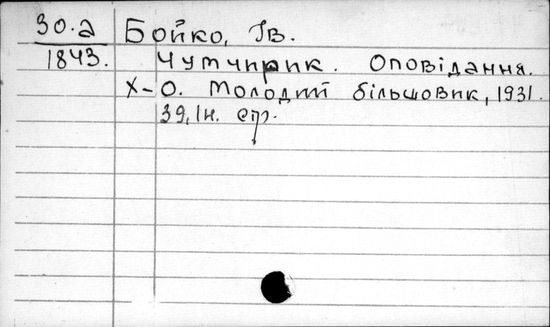 30.а Бойко, Ів.
1843. Чутчирик. Оповідання.
Х-О. Молодий більшовик, 1931.
39, Ін. стр.